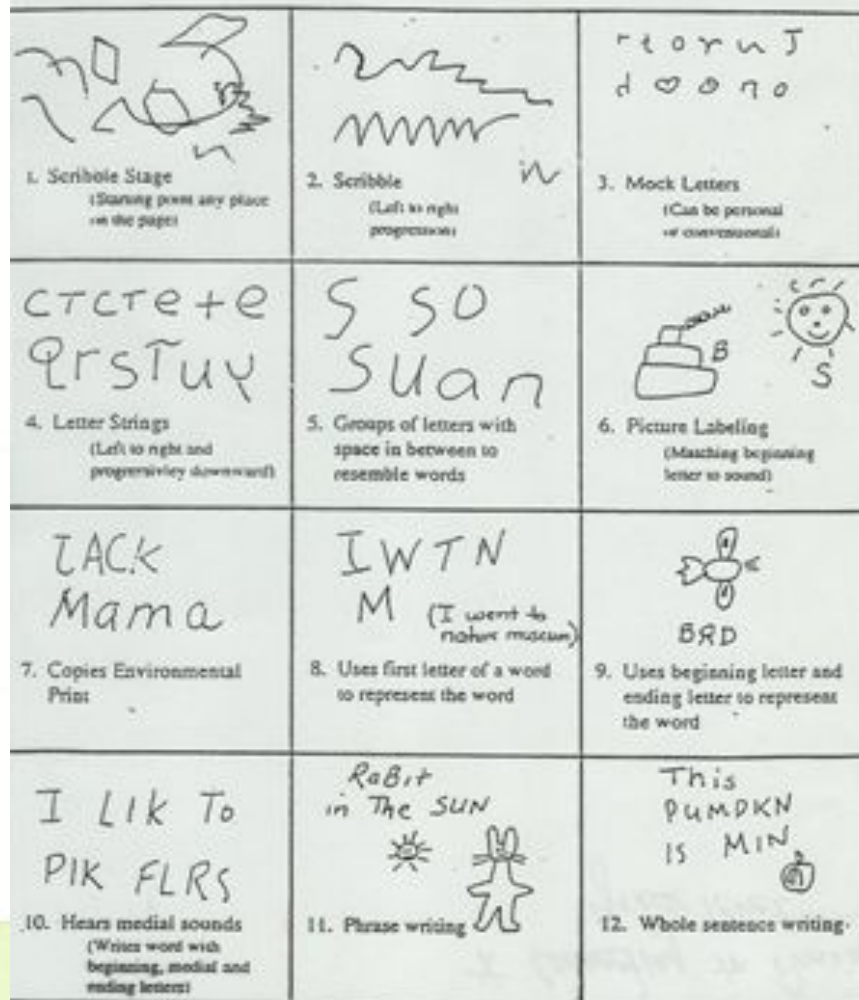 1. Scribble Stage
(Starting point any place
on the page)
2. Scribble
(Left to right
progression)
r t o r u J
d o o n o
3. Mock Letters
(Can be personal
or conventional)
CTCTe+e
QrsTuy
4. Letter Strings
(Left to right and
progressivley downward)
S SO
Suan
5. Groups of letters with
space in between to
resemble words
B
S
6. Picture Labeling
(Matching beginning
letter to sound)
ZACK
Mama
7. Copies Environmental
Print
I W T N
M (I went to
nature museum)
8. Uses first letter of a word
to represent the word
BRD
9. Uses beginning letter and
ending letter to represent
the word
I LIK To
PIK FLRS
10. Hears medial sounds
(Writes word with
beginning, medial and
ending letters)
RaBit
in The SUN
11. Phrase writing
This
PUMPKN
IS MIN
12. Whole sentence writing.